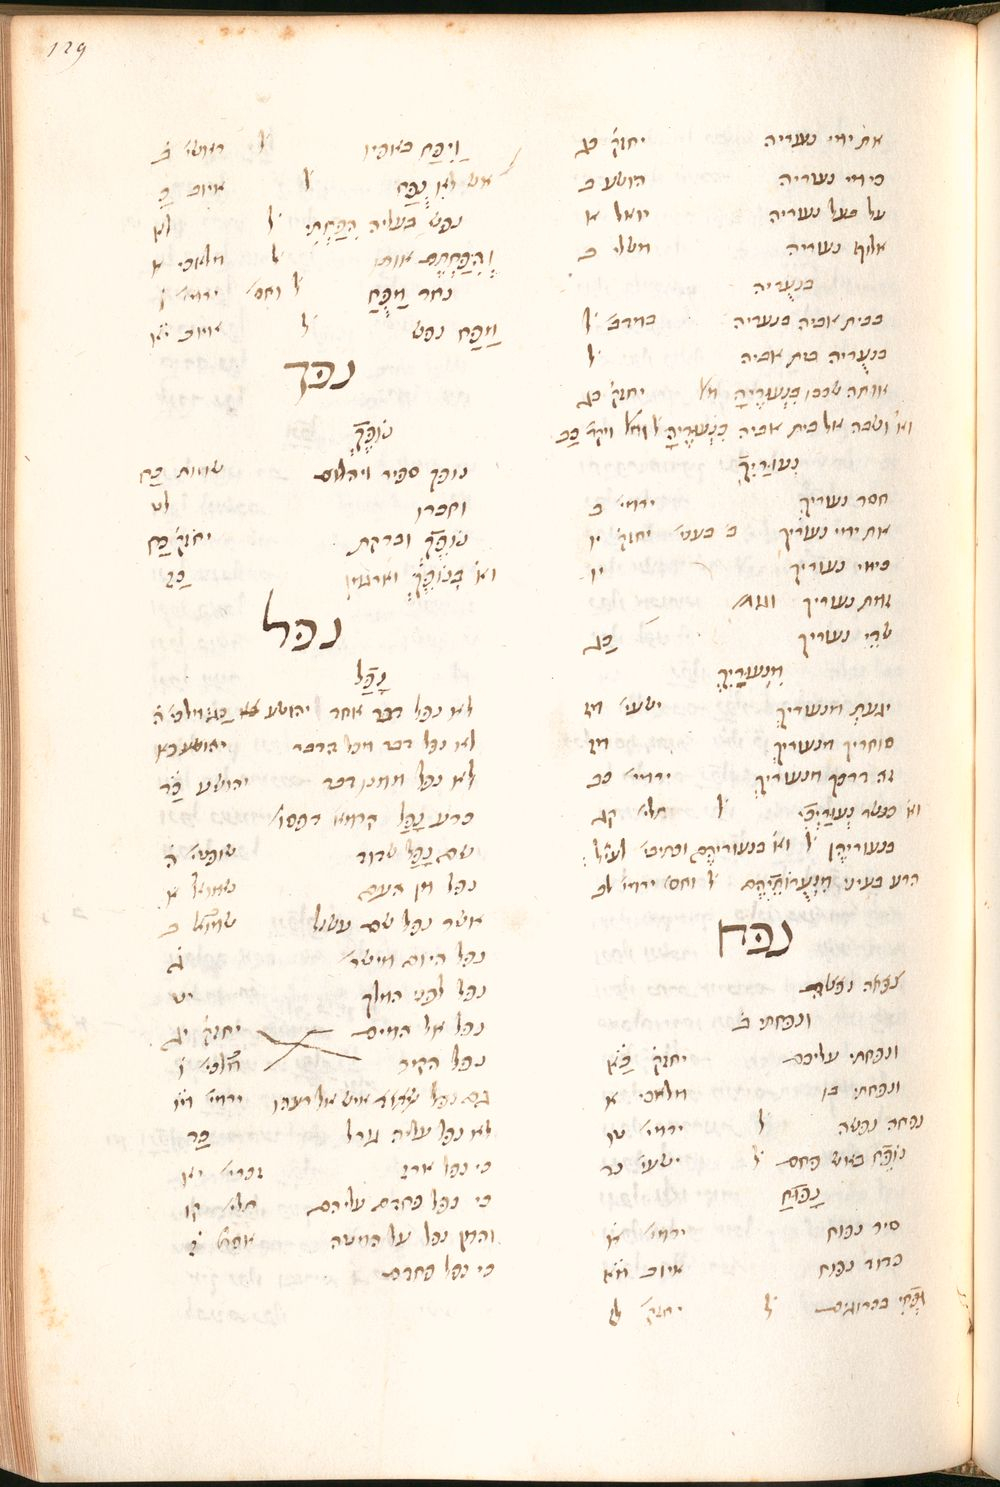 129
את ימי נעוריה יחזק׳ כג
כימי נעוריה הושע ב
על בעל נעוריה יואל א
אלוף נעוריה משלי ב
בנעוריה
בבית אביה בנעוריה במדב׳ ל
בנעוריה בית אביה ל
אותה שכבו בִנְעוּרֶיהָ יחזק׳ כג
ושבה אל בית אביה כִּנְעוּרֶיהָ ויקר׳ כב
נְעוּרַיִךְ
חסד נעוריך ירמי׳ ב
את ימי נעוריך יחזק׳ יו
בימי נעוריך יו
זמת נעוריך
שדי נעוריך כג
מִנְעוּרַיִךְ
יגעת מנעוריך ישעי׳ מז
סוחריך מנעוריך מז
זה דרכך מנעוריך ירמי׳ כב
כנשר נְעוּרָיְכִי ל תלי׳ קג
בנעוריהן ל בנעוריהם
הרע בעיני מִנְּעֻרוֹתֵיהֶם ל וחס׳ ירמי׳ לב
נפח
ונפחתי ב
ונפחתי עליכם יחזק׳ כא
ונפחתי בו מלאכי א
נפחה נפשה ל ירמי׳ טו
נוֹפֵחַ באש פחם ל ישעי׳ נד
נָפוּחַ
סיר נפוח ירמי׳ א
כדוד נפוח איוב מא
בהרוגים ל יחזק׳ לז
וַיִּפַּח באפיו ל ראשי׳ ב
אש לא נֻפָּח ל איוב כ
נפש בעליה הִפָּחְתִּי ל לא
וְהִפַּחְתֶּם אותו ל מלאכי א
נחר מַפֻּחַ ל וחס׳ ירמי׳ ו
מַפַּח נפש ל איוב יא
נפך
נוֹפֶךְ
נופך ספיר ויהלום שמות כח
וחברו לט
נוֹפֶךְ וברקת יחזק׳ כח
בְּנוֹפֶךְ וארגמן כז
נפל
נָפַל
לא נפל דבר אחד יהושע כג מלכי׳ ח
לא נפל דבר מכל הדבר יהושע כא
לא נפל ממנו דבר יהושע כג
כרע נָפַל קדמא דפסו׳
שם נָפַל שדוד שופטי׳ ה
נפל מן העם שמואל א
אשר נפל שם עשהאל שמואל ב
נפל היום מישר׳ ג
נפל לפני המלך יט
נפל אל המים יחזק׳ יג
נפל הקיר מלכי׳ ו
גם נפל איש אל רעהו ירמי׳ מו
לא נפל עליה גורל כד
כי נפל ארז זכרי׳ יא
כי נפל פחדם עליהם תלי׳ קו
והמן נפל על המיטה אסתר ז
כי נפל פחדם